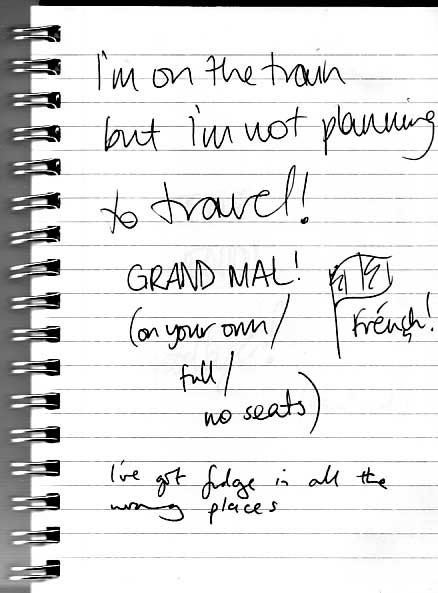 I'm on the train
but I'm not planning
to travel!
GRAND MAL!
(on your own/
Frénçh!
full/
no seats)
I've got fudge in all the
wrong places